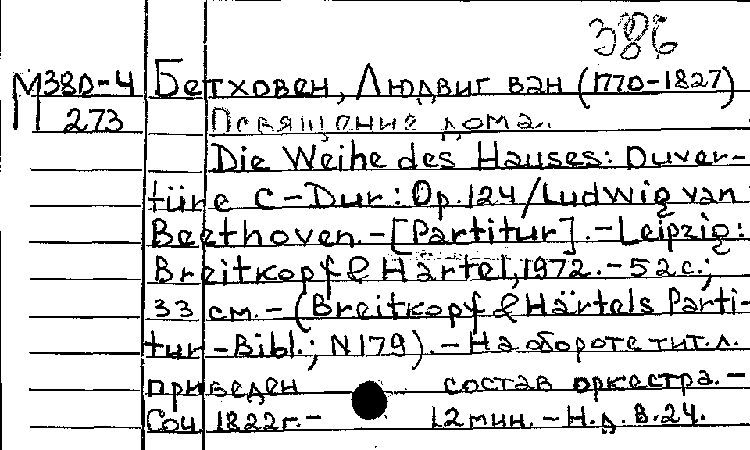 386
М38D-4 Бетховен, Людвиг ван (1770-1827)
273 Освящение дома..
Die Weihe des Hauses: Ouver-
türe C-Dur: Op. 124/Ludwig van
Beethoven.-[Partitur].-Leipzig:
Breitkopf & Härtel, 1972.-52 с.;
33 см.-(Breitkopf & Härtels Parti-
tur-Bibl.; N179).-На обороте тит. л.
приведен состав оркестра.-
Соч. 1822г.- 12 мин.-Н.д. В.24.